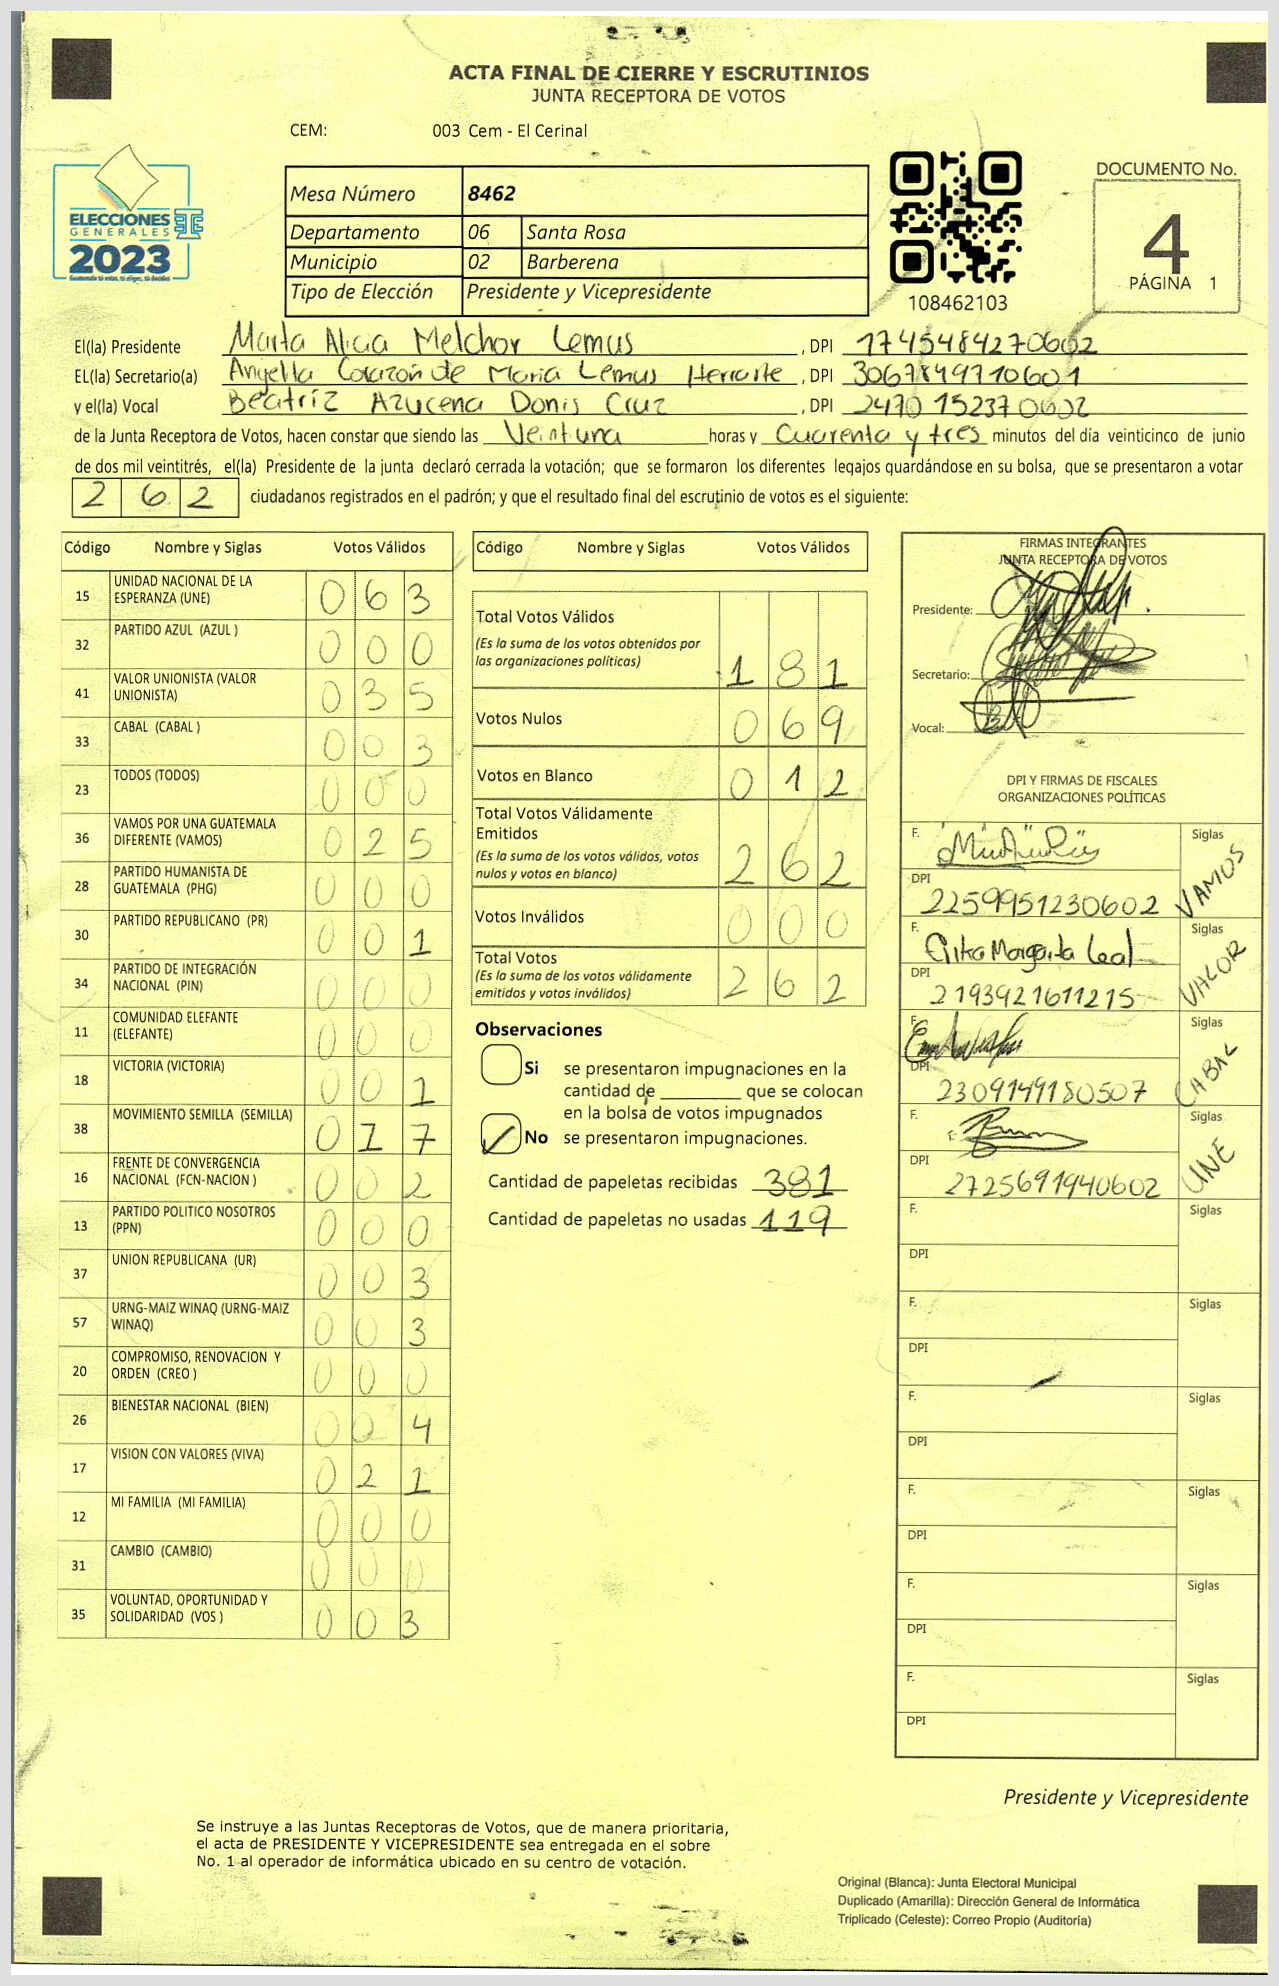 ACTA FINAL DE CIERRE Y ESCRUTINIOS
JUNTA RECEPTORA DE VOTOS
CEM: 003 Cem - El Cerinal
ELECCIONES
GENERALES
2023
Mesa Número 8462
Departamento 06 Santa Rosa
Municipio 02 Barberena
Tipo de Elección Presidente y Vicepresidente
108462103
DOCUMENTO No.
4
PÁGINA 1
El(la) Presidente Marta Alicia Melchor Lemus, DPI 1745484270602
EL(la) Secretario(a) Angella Corazón de Maria Lemus Herrarte, DPI 3067849710601
y el(la) Vocal Beatríz Azucena Donis Cruz, DPI 2470152370602
de la Junta Receptora de Votos, hacen constar que siendo las Veintuna horas y Cuarenta y tres minutos del día veinticinco de junio
de dos mil veintitrés, el(la) Presidente de la junta declaró cerrada la votación; que se formaron los diferentes legajos guardándose en su bolsa, que se presentaron a votar
262 ciudadanos registrados en el padrón; y que el resultado final del escrutinio de votos es el siguiente:
Código Nombre y Siglas Votos Válidos
15 UNIDAD NACIONAL DE LA ESPERANZA (UNE) 063
32 PARTIDO AZUL (AZUL ) 000
41 VALOR UNIONISTA (VALOR UNIONISTA) 035
33 CABAL (CABAL ) 003
23 TODOS (TODOS) 000
36 VAMOS POR UNA GUATEMALA DIFERENTE (VAMOS) 025
28 PARTIDO HUMANISTA DE GUATEMALA (PHG) 000
30 PARTIDO REPUBLICANO (PR) 001
34 PARTIDO DE INTEGRACIÓN NACIONAL (PIN) 000
11 COMUNIDAD ELEFANTE (ELEFANTE) 000
18 VICTORIA (VICTORIA) 001
38 MOVIMIENTO SEMILLA (SEMILLA) 017
16 FRENTE DE CONVERGENCIA NACIONAL (FCN-NACION ) 002
13 PARTIDO POLITICO NOSOTROS (PPN) 000
37 UNION REPUBLICANA (UR) 003
57 URNG-MAIZ WINAQ (URNG-MAIZ WINAQ) 003
20 COMPROMISO, RENOVACION Y ORDEN (CREO ) 000
26 BIENESTAR NACIONAL (BIEN) 004
17 VISION CON VALORES (VIVA) 021
12 MI FAMILIA (MI FAMILIA) 000
31 CAMBIO (CAMBIO) 000
35 VOLUNTAD, OPORTUNIDAD Y SOLIDARIDAD (VOS ) 003
Código Nombre y Siglas Votos Válidos
Total Votos Válidos
(Es la suma de los votos obtenidos por
las organizaciones políticas) 181
Votos Nulos 069
Votos en Blanco 012
Total Votos Válidamente
Emitidos
(Es la suma de los votos válidos, votos
nulos y votos en blanco) 262
Votos Inválidos 000
Total Votos
(Es la suma de los votos válidamente
emitidos y votos inválidos) 262
Observaciones
Si se presentaron impugnaciones en la
cantidad de ________ que se colocan
en la bolsa de votos impugnados
No se presentaron impugnaciones.
Cantidad de papeletas recibidas 381
Cantidad de papeletas no usadas 119
FIRMAS INTEGRANTES
JUNTA RECEPTORA DE VOTOS
Presidente:
Secretario:
Vocal:
DPI Y FIRMAS DE FISCALES
ORGANIZACIONES POLÍTICAS
F. Siglas VAMOS
DPI 2259951230602
F. Margarita Leal Siglas VALOR
DPI 2193921611215
F. Siglas CABAL
DPI 2309149180507
F. Siglas UNE
DPI 2725691940602
F. Siglas
DPI
F. Siglas
DPI
F. Siglas
DPI
F. Siglas
DPI
F. Siglas
DPI
F. Siglas
DPI
Presidente y Vicepresidente
Se instruye a las Juntas Receptoras de Votos, que de manera prioritaria,
el acta de PRESIDENTE Y VICEPRESIDENTE sea entregada en el sobre
No. 1 al operador de informática ubicado en su centro de votación.
Original (Blanca): Junta Electoral Municipal
Duplicado (Amarilla): Dirección General de Informática
Triplicado (Celeste): Correo Propio (Auditoría)